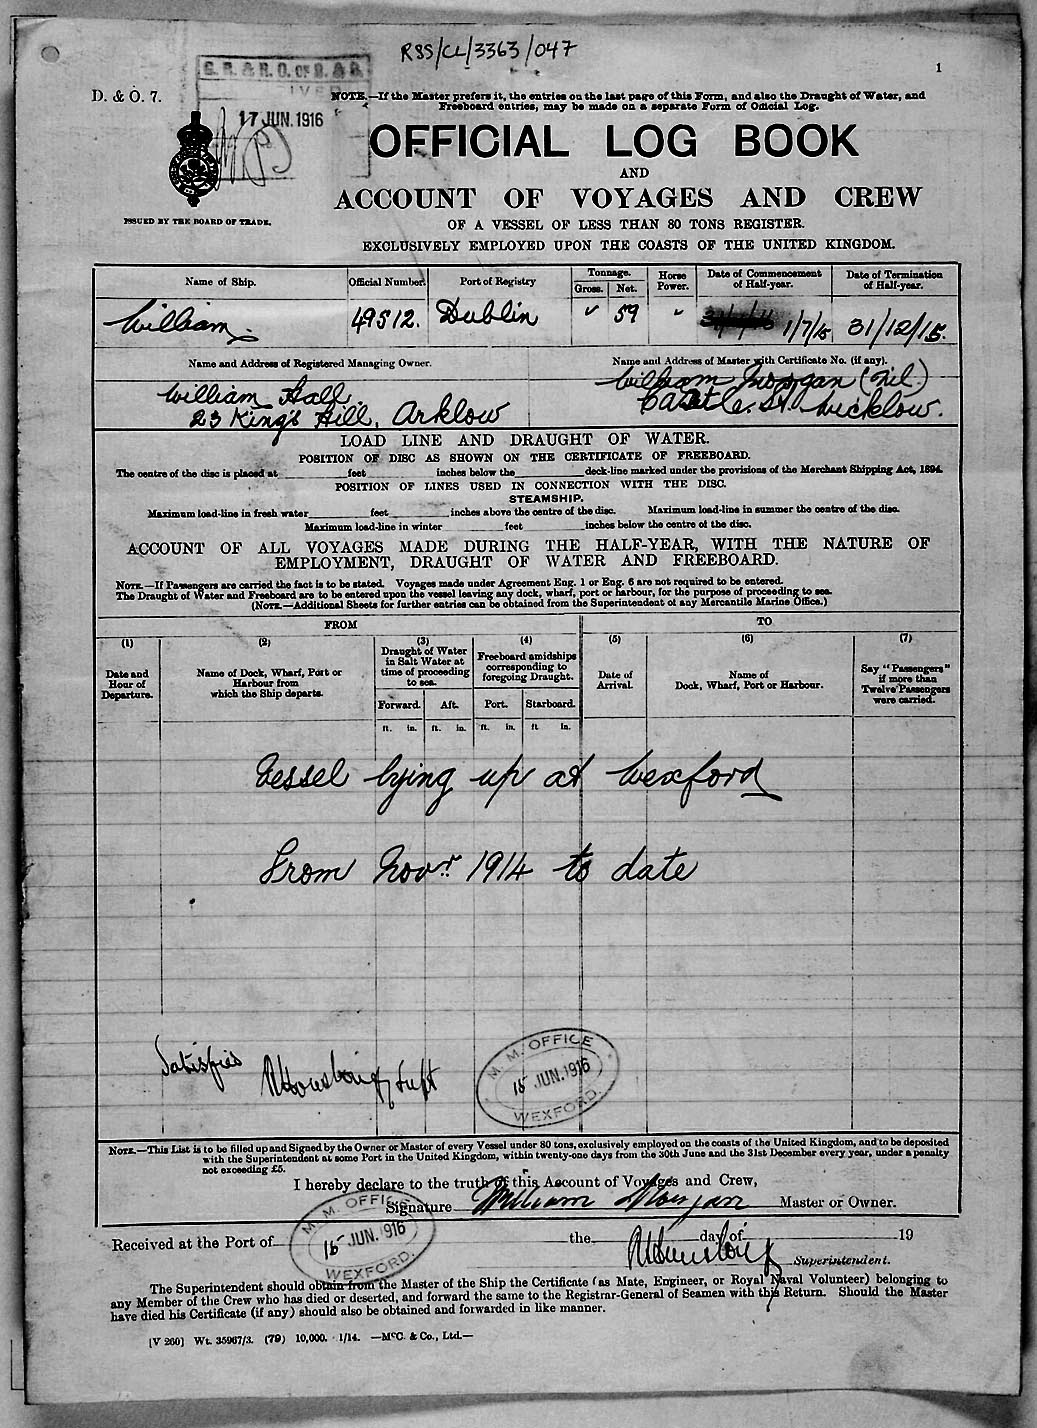 RSS/CL/3363/047
1
D. & O. 7.
17 JUN. 1916
NOTE.—If the Master prefers it, the entries on the last page of this Form, and also the Draught of Water, and
Freeboard entries, may be made on a separate Form of Official Log.
OFFICIAL LOG BOOK
AND
ACCOUNT OF VOYAGES AND CREW
ISSUED BY THE BOARD OF TRADE.
OF A VESSEL OF LESS THAN 80 TONS REGISTER.
EXCLUSIVELY EMPLOYED UPON THE COASTS OF THE UNITED KINGDOM.
Name of Ship. Official Number. Port of Registry Tonnage. Gross. Net. Horse Power. Date of Commencement of Half-year. Date of Termination of Half-year.
William. 49512. Dublin 59 1/7/15 31/12/15.
Name and Address of Registered Managing Owner. Name and Address of Master with Certificate No. (if any).
William Hall. William Morgan (Nil)
23 King's Hill, Arklow Castle St. Wicklow.
LOAD LINE AND DRAUGHT OF WATER.
POSITION OF DISC AS SHOWN ON THE CERTIFICATE OF FREEBOARD.
The centre of the disc is placed at feet inches below the deck-line marked under the provisions of the Merchant Shipping Act, 1894.
POSITION OF LINES USED IN CONNECTION WITH THE DISC.
STEAMSHIP.
Maximum load-line in fresh water feet inches above the centre of the disc. Maximum load-line in summer the centre of the disc.
Maximum load-line in winter feet inches below the centre of the disc.
ACCOUNT OF ALL VOYAGES MADE DURING THE HALF-YEAR, WITH THE NATURE OF
EMPLOYMENT, DRAUGHT OF WATER AND FREEBOARD.
NOTE.—If Passengers are carried the fact is to be stated. Voyages made under Agreement Eng. 1 or Eng. 6 are not required to be entered.
The Draught of Water and Freeboard are to be entered upon the vessel leaving any dock, wharf, port or harbour, for the purpose of proceeding to sea.
(NOTE.—Additional Sheets for further entries can be obtained from the Superintendent of any Mercantile Marine Office.)
FROM TO
(1) (2) (3) (4) (5) (6) (7)
Date and Hour of Departure. Name of Dock, Wharf, Port or Harbour from which the Ship departs. Draught of Water in Salt Water at time of proceeding to sea. Freeboard amidships corresponding to foregoing Draught. Date of Arrival. Name of Dock, Wharf, Port or Harbour. Say "Passengers" if more than Twelve Passengers were carried.
Forward. Aft. Port. Starboard.
ft. in. ft. in. ft. in. ft in.
Vessel lying up at Wexford
From Novr. 1914 to date
Satisfied
Supt
M. M. OFFICE
15 JUN. 1916
WEXFORD.
NOTE.—This List is to be filled up and Signed by the Owner or Master of every Vessel under 80 tons, exclusively employed on the coasts of the United Kingdom, and to be deposited
with the Superintendent at some Port in the United Kingdom, within twenty-one days from the 30th June and the 31st December every year, under a penalty
not exceeding £5.
I hereby declare to the truth of this Account of Voyages and Crew,
Signature William Morgan Master or Owner.
M. M. OFFICE
15 JUN. 1916
WEXFORD.
Received at the Port of the day of 19
Superintendent.
The Superintendent should obtain from the Master of the Ship the Certificate (as Mate, Engineer, or Royal Naval Volunteer) belonging to
any Member of the Crew who has died or deserted, and forward the same to the Registrar-General of Seamen with this Return. Should the Master
have died his Certificate (if any) should also be obtained and forwarded in like manner.
[V 260] Wt. 35967/3. (79) 10,000. 1/14. —McC. & Co., Ltd.—